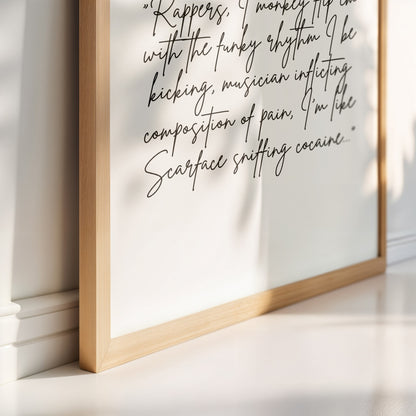 "Rappers, I monkey flip em
with the funky rhythm I be
kicking, musician inflicting
composition of pain, I'm like
Scarface sniffing cocaine..."